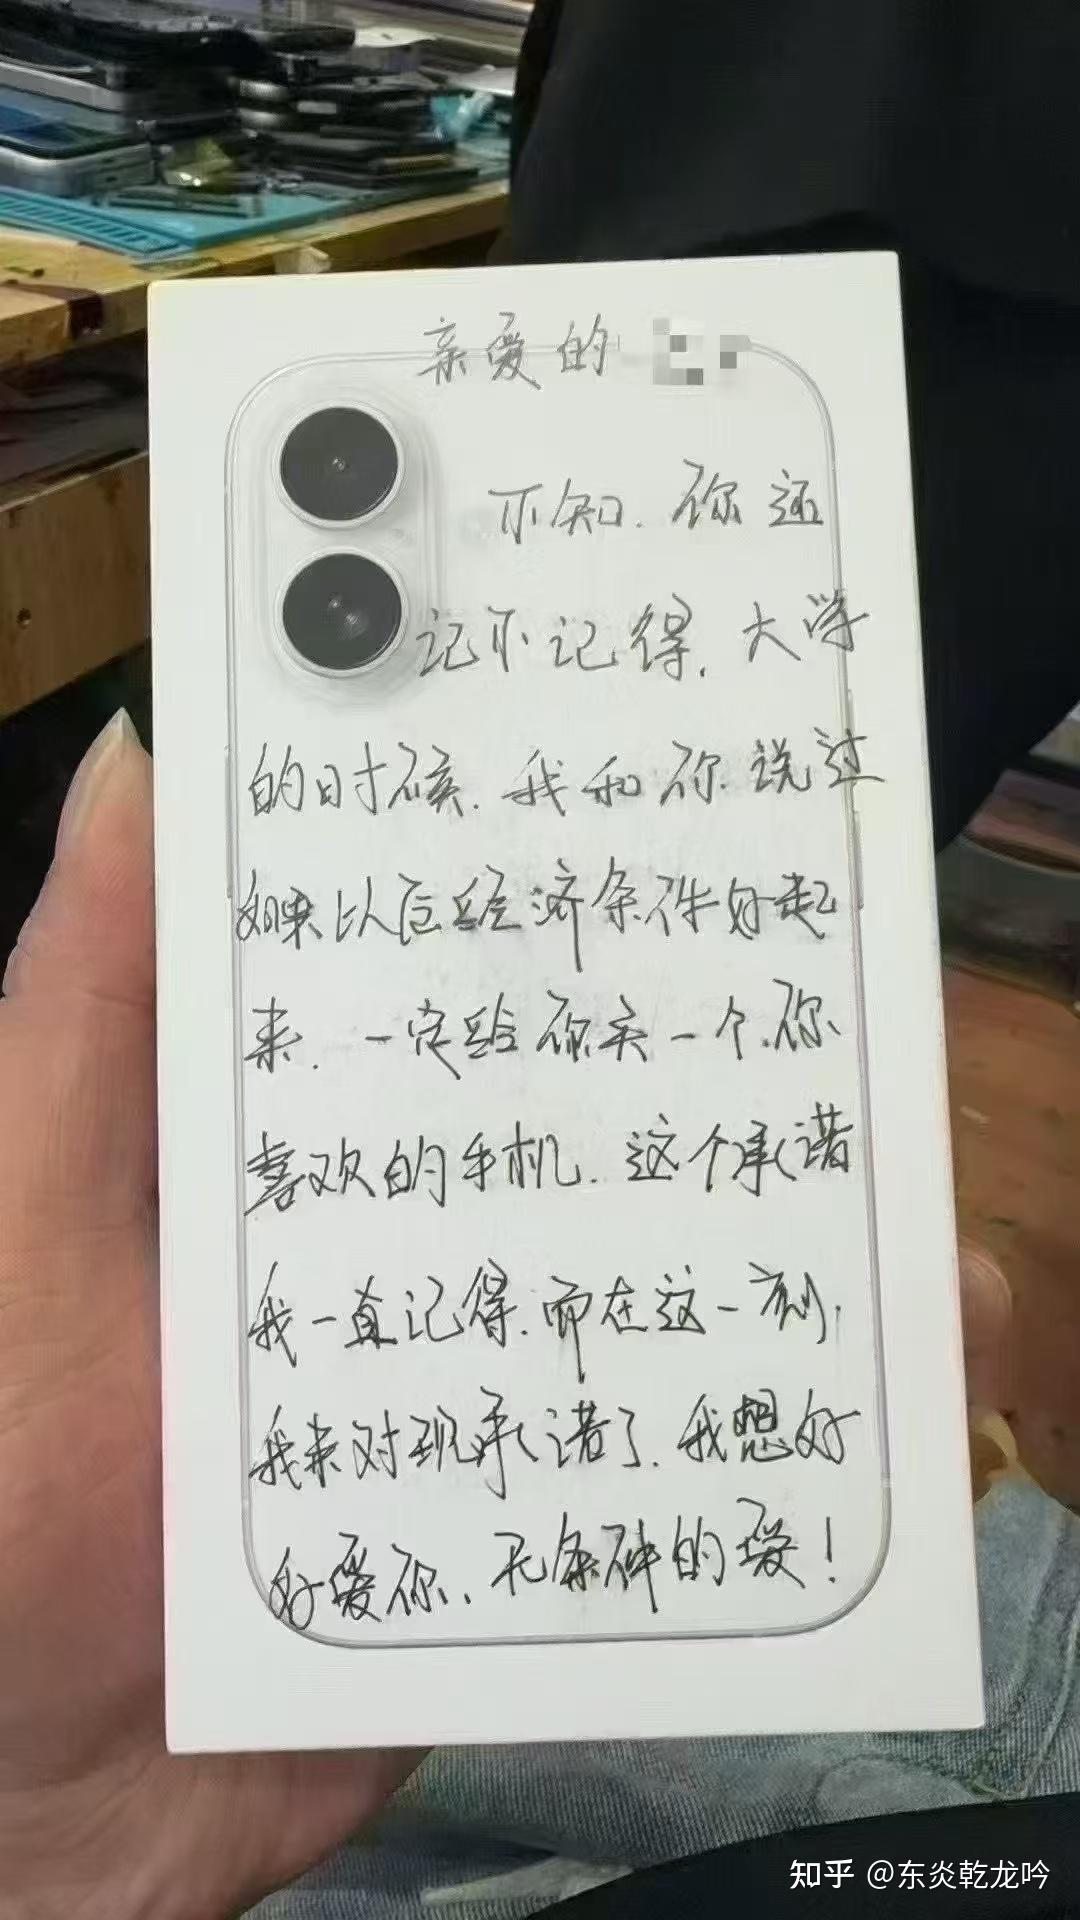 亲爱的
不知.你还
记不记得.大学
的时候.我和你.说过
如果以后经济条件好起
来.一定给你买一个.你
喜欢的手机.这个承诺
我一直记得.而在这一刻.
我来对现承诺了.我想好
好爱你.无条件的爱!
知乎 @东炎乾龙吟